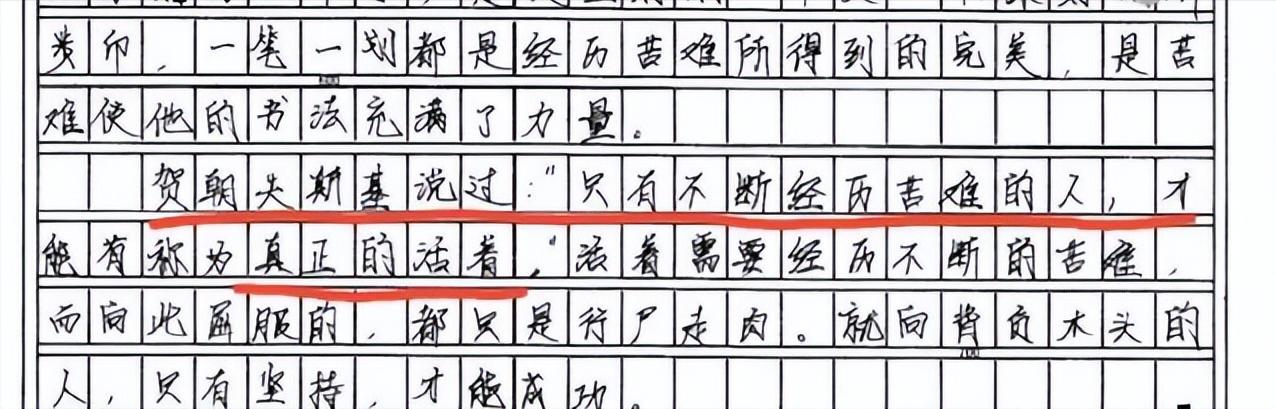 贵印，一笔一划都是经历苦难所得到的完美，是苦
难使他的书法充满了力量。
贺朝夫斯基说过：“只有不断经历苦难的人，才
能有称为真正的活着，”活着需要经历不断的苦难，
而向此屈服的，都只是行尸走肉。就向背负木头的
700
人，只有坚持，才能成功。